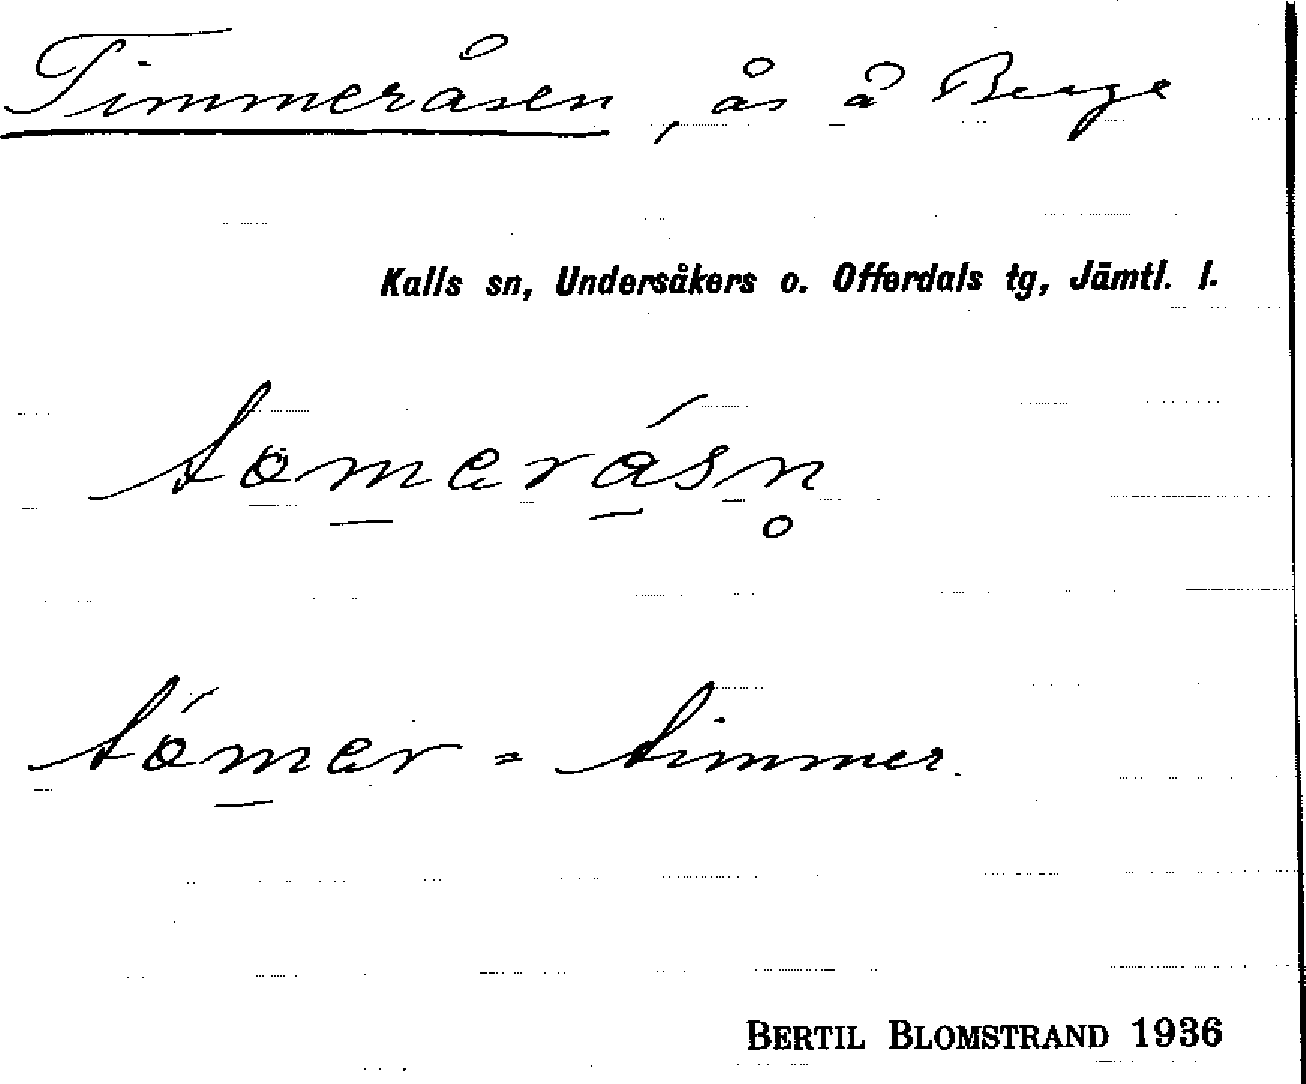 Timmeråsen, ås å Berge
Kalls sn, Undersåkers o. Offerdals tg, Jämtl. l.
tomərásn̥
tómər = timmer.
BERTIL BLOMSTRAND 1936